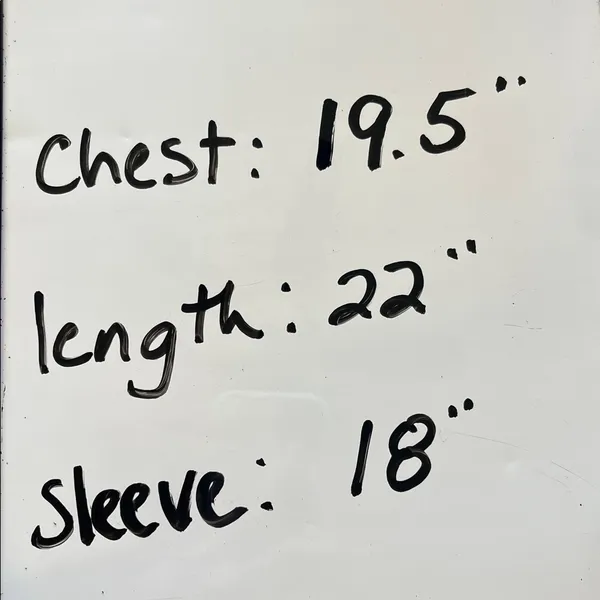 Chest: 19.5"
length: 22"
Sleeve: 18"